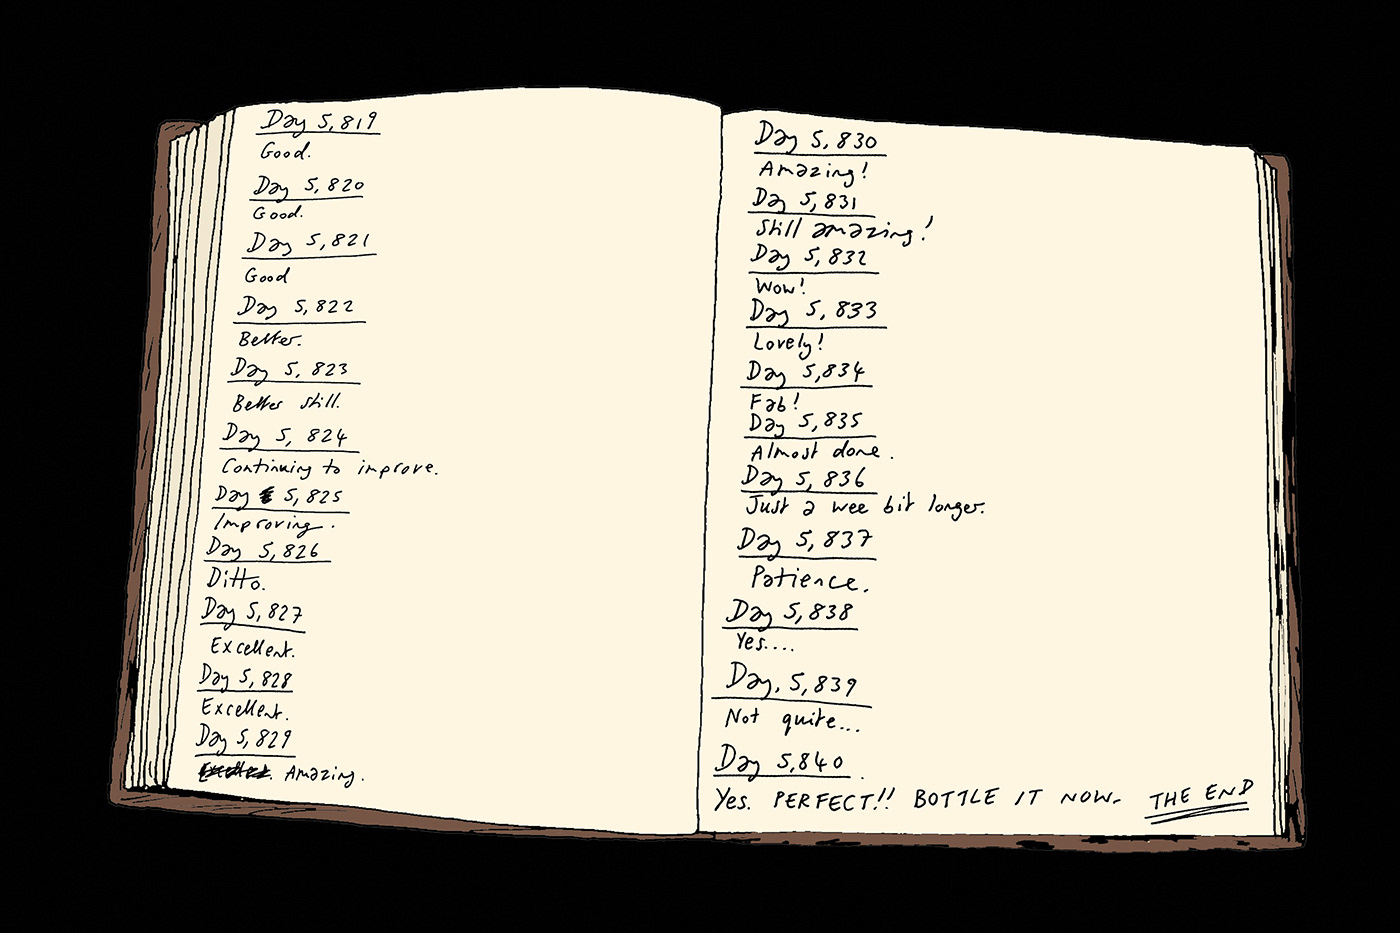 Day 5,819
Good.
Day 5,820
Good.
Day 5,821
Good
Day 5,822
Better.
Day 5,823
Better still.
Day 5,824
Continuing to improve.
Day 5,825
Improving.
Day 5,826
Ditto.
Day 5,827
Excellent.
Day 5,828
Excellent.
Day 5,829
Amazing.
Day 5,830
Amazing!
Day 5,831
Still amazing!
Day 5,832
Wow!
Day 5,833
Lovely!
Day 5,834
Fab!
Day 5,835
Almost done.
Day 5,836
Just a wee bit longer.
Day 5,837
Patience.
Day 5,838
Yes....
Day, 5,839
Not quite...
Day 5,840.
Yes. PERFECT!! BOTTLE IT NOW. THE END